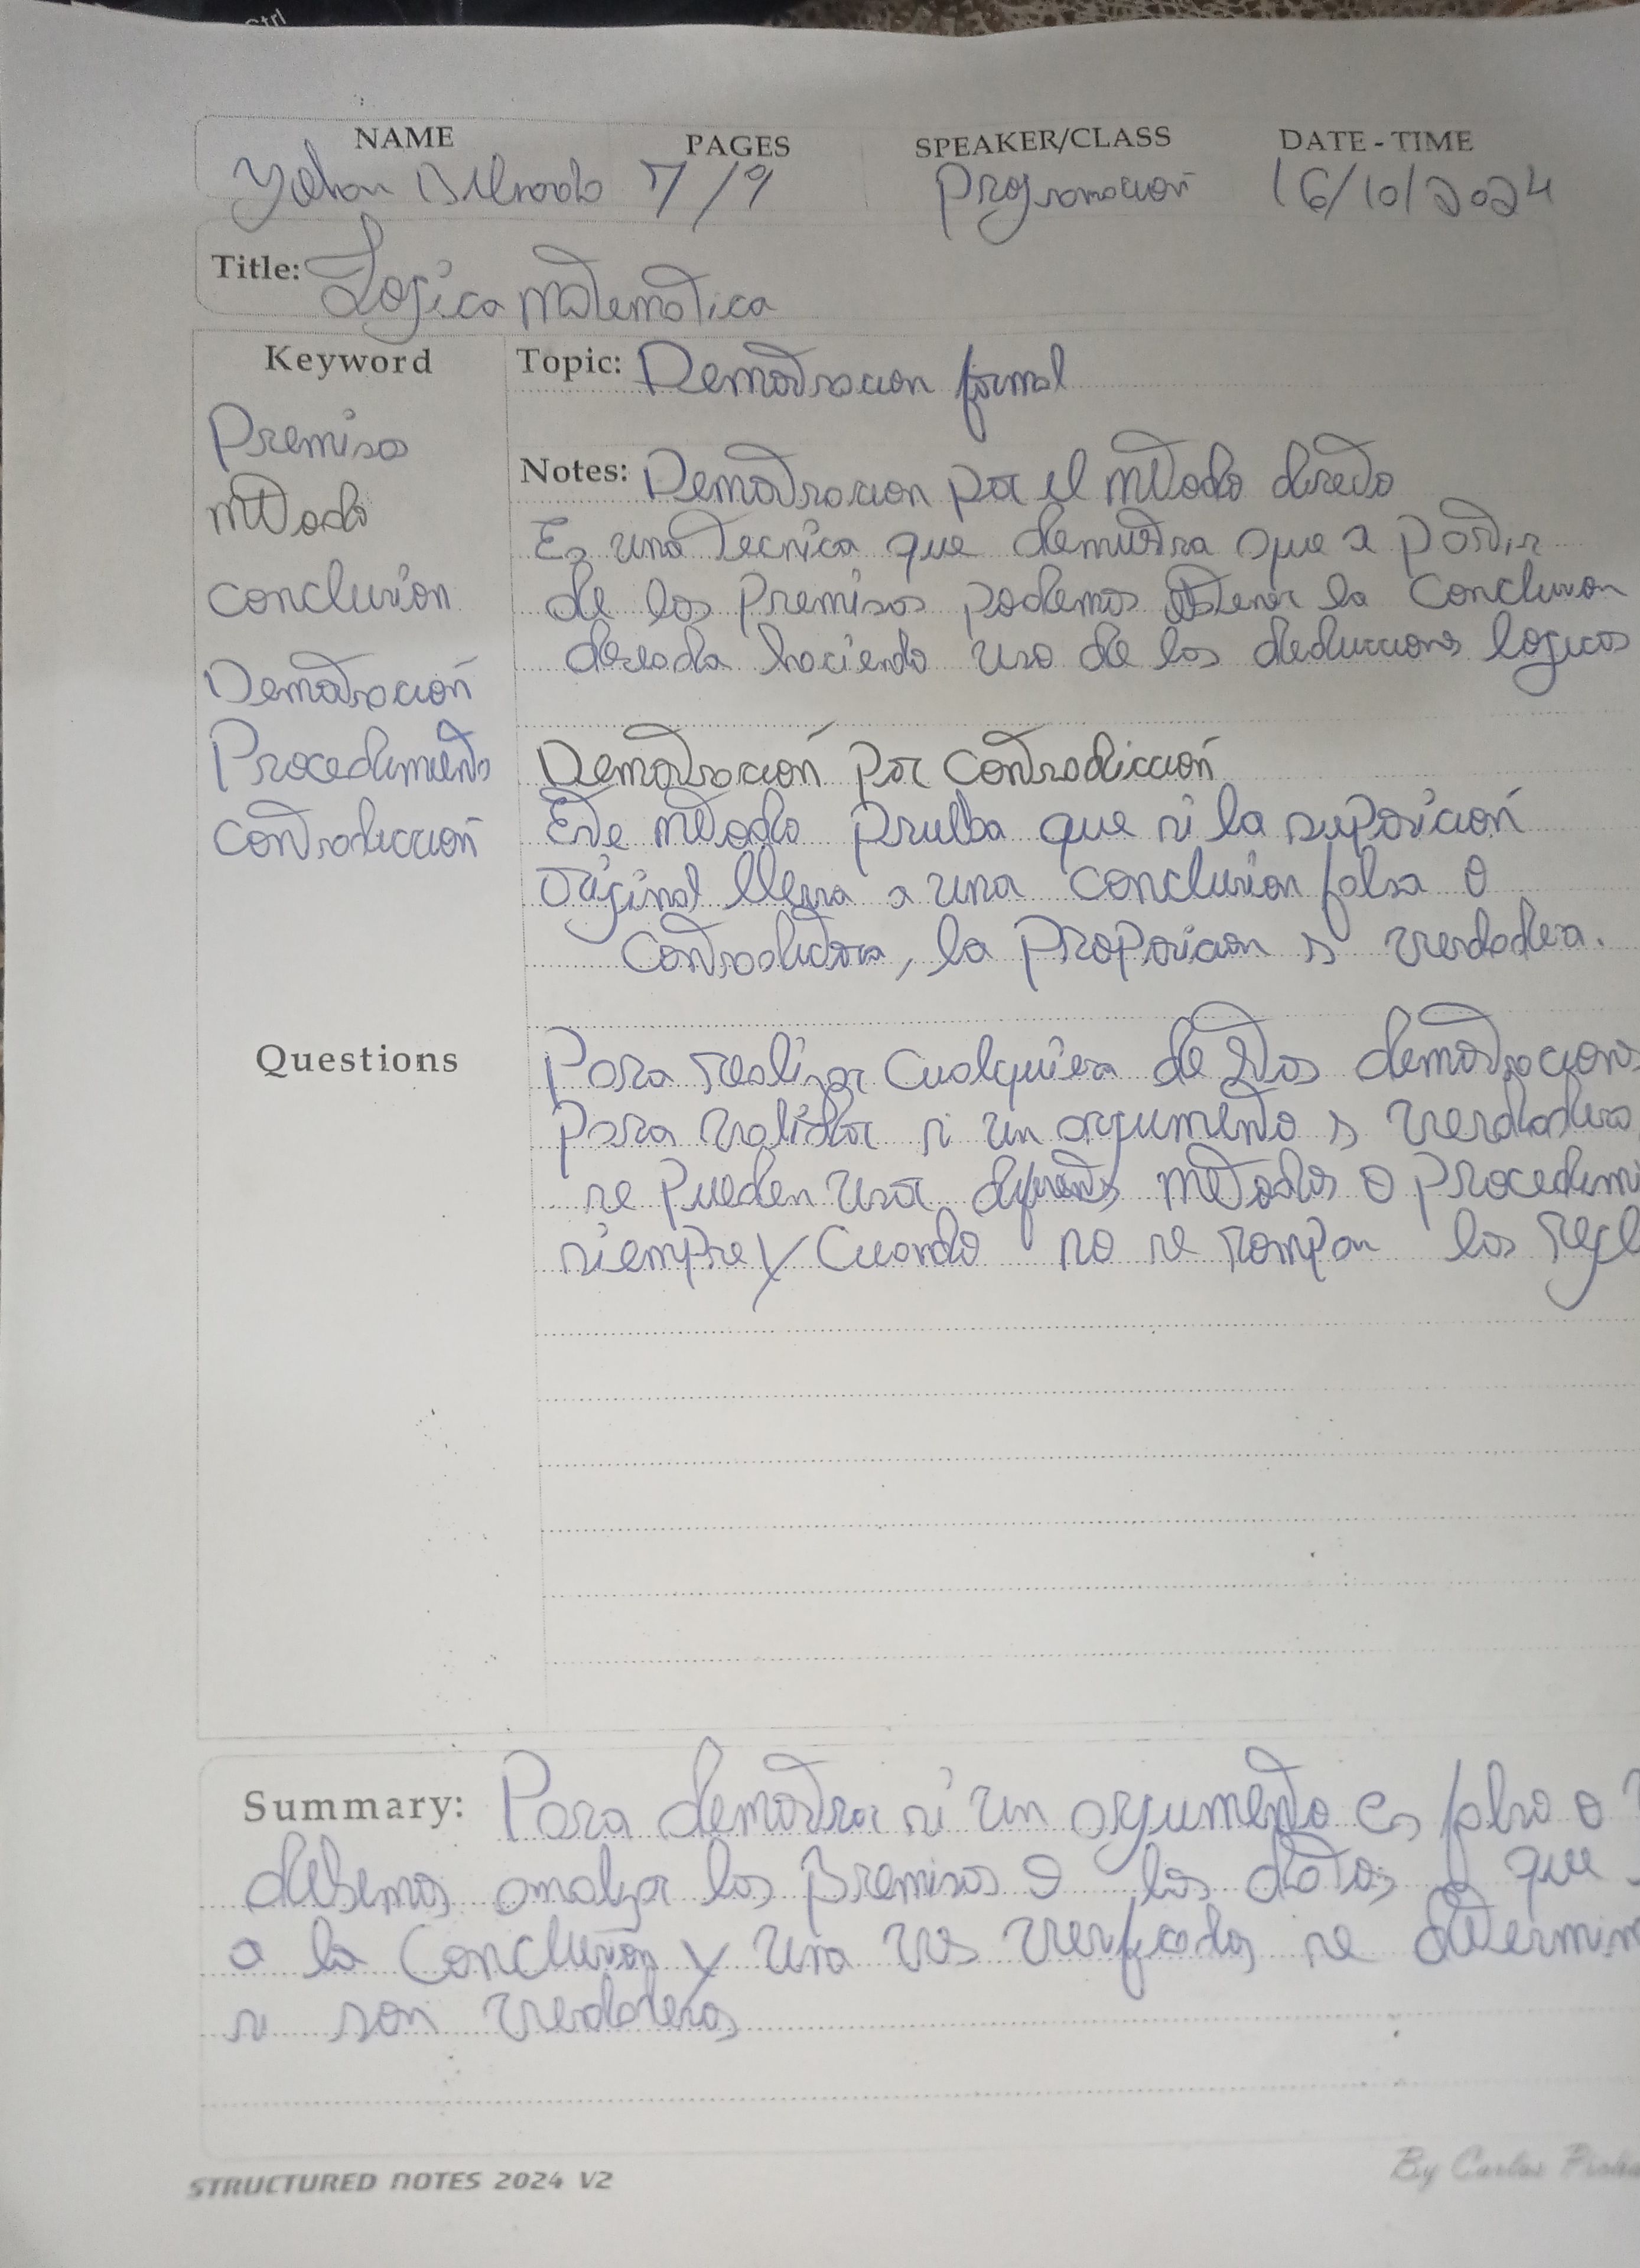 Ctrl
NAME PAGES SPEAKER/CLASS DATE - TIME
7/9 Programación 16/10/2024
Title: Logica matematica
Keyword
Premisas
metodo
conclusión
Demostración
Procedimiento
contradicción
Topic: Demostracion formal
Notes: Demostracion por el metodo directo
Es una tecnica que demuestra que a partir
de las premisas podemos obtener la conclusion
deseada haciendo uso de las deducciones logicas
Demostración por contradicción
Este metodo prueba que si la suposición
original lleva a una conclusion falsa o
contradictora, la proposicion es verdadera.
Questions
Para realizar cualquiera de estas demostraciones
para validar si un argumento es verdadero
se pueden usar diferentes metodos o procedimi
siempre y cuando no se rompan las regl
Summary: Para demostrar si un argumento es falso o
debemos analizar las premisas o los datos que
a la conclusión y una ves verificadas se determin
si son verdaderas
STRUCTURED NOTES 2024 V2
By Carlos